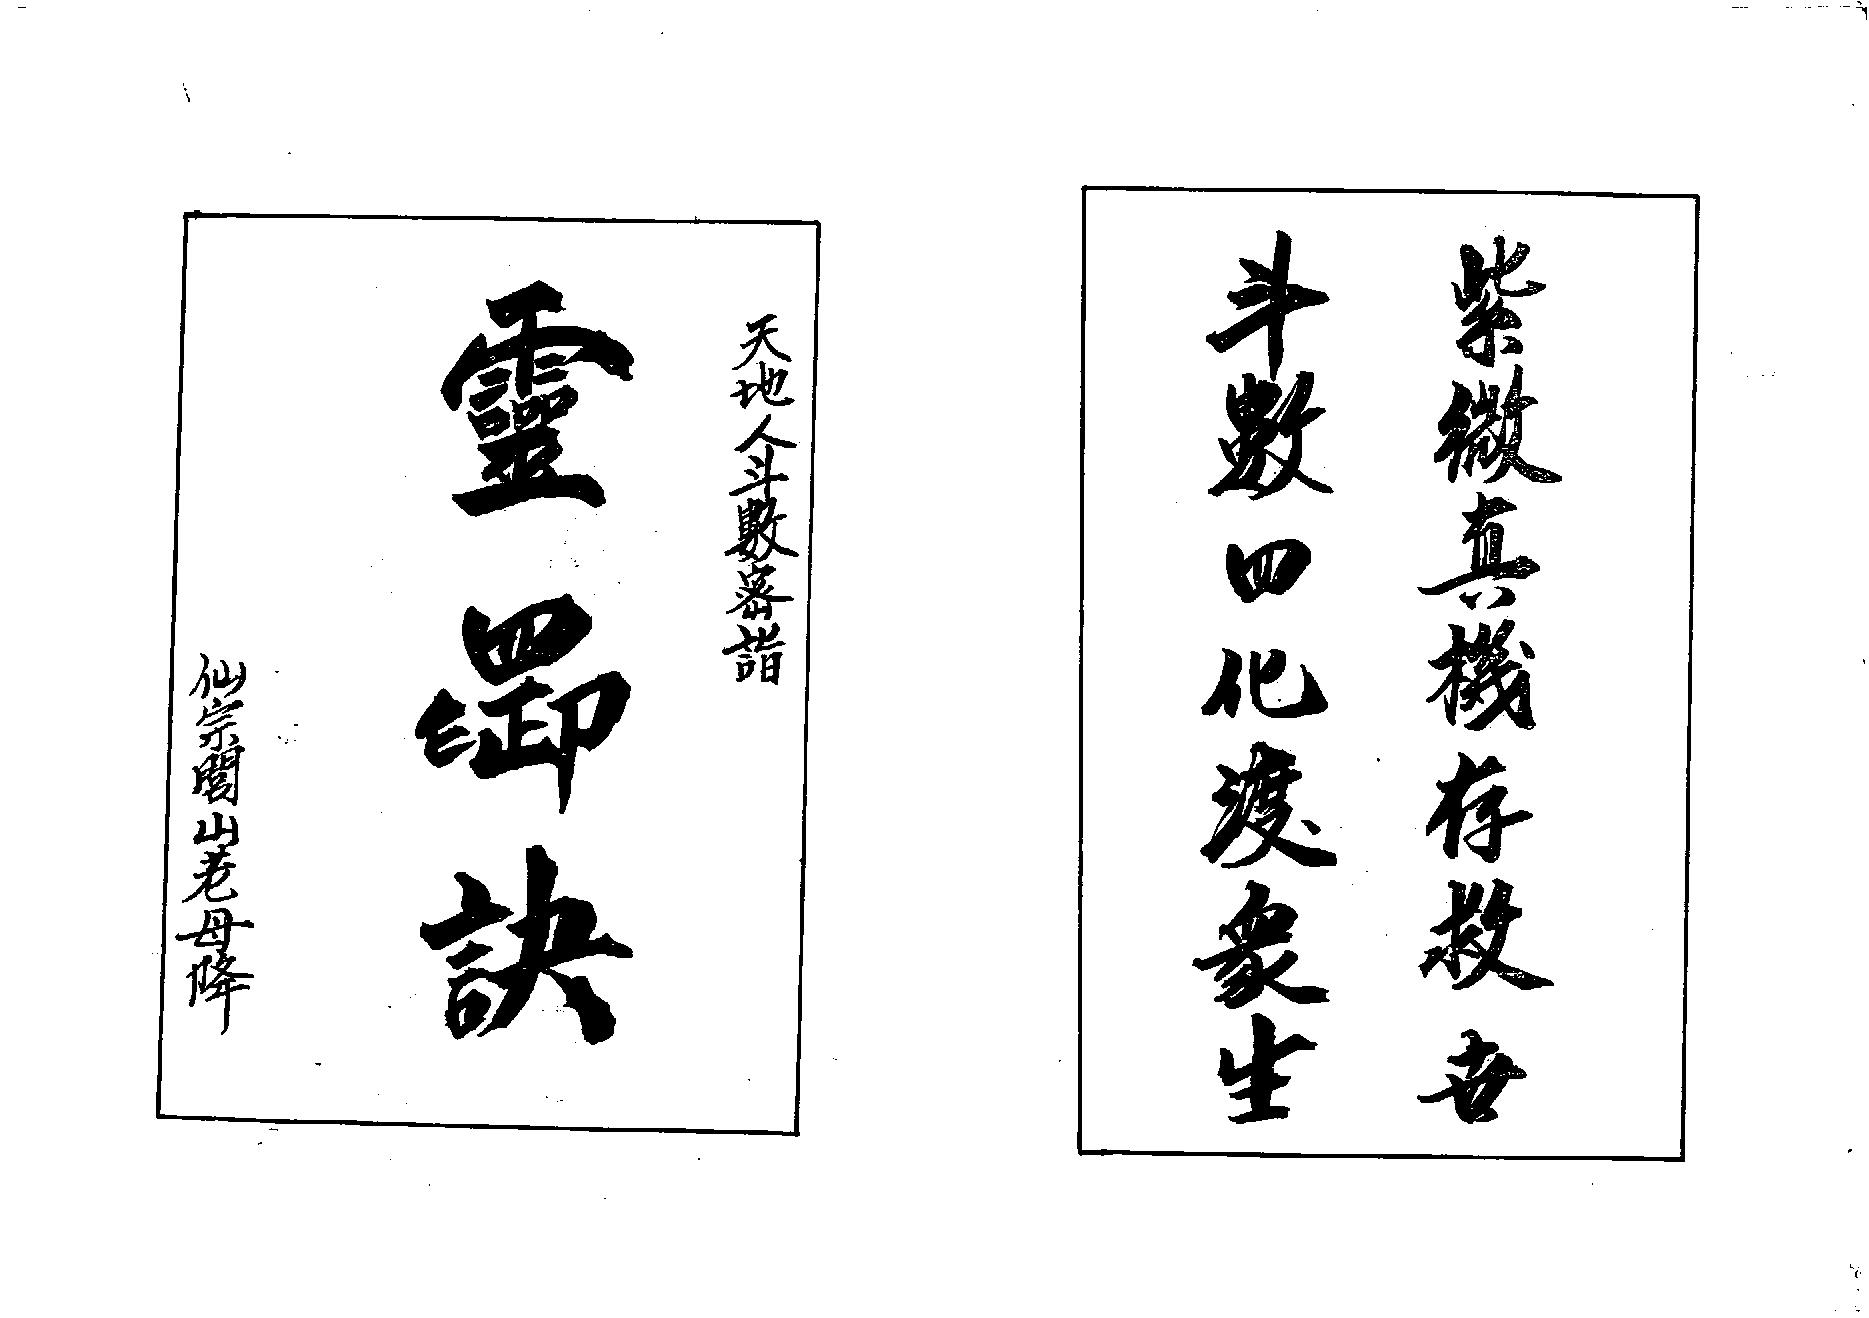 紫微真機存救世
斗數四化渡眾生
天地人斗數密詣
靈訣
仙宗閭山老母降